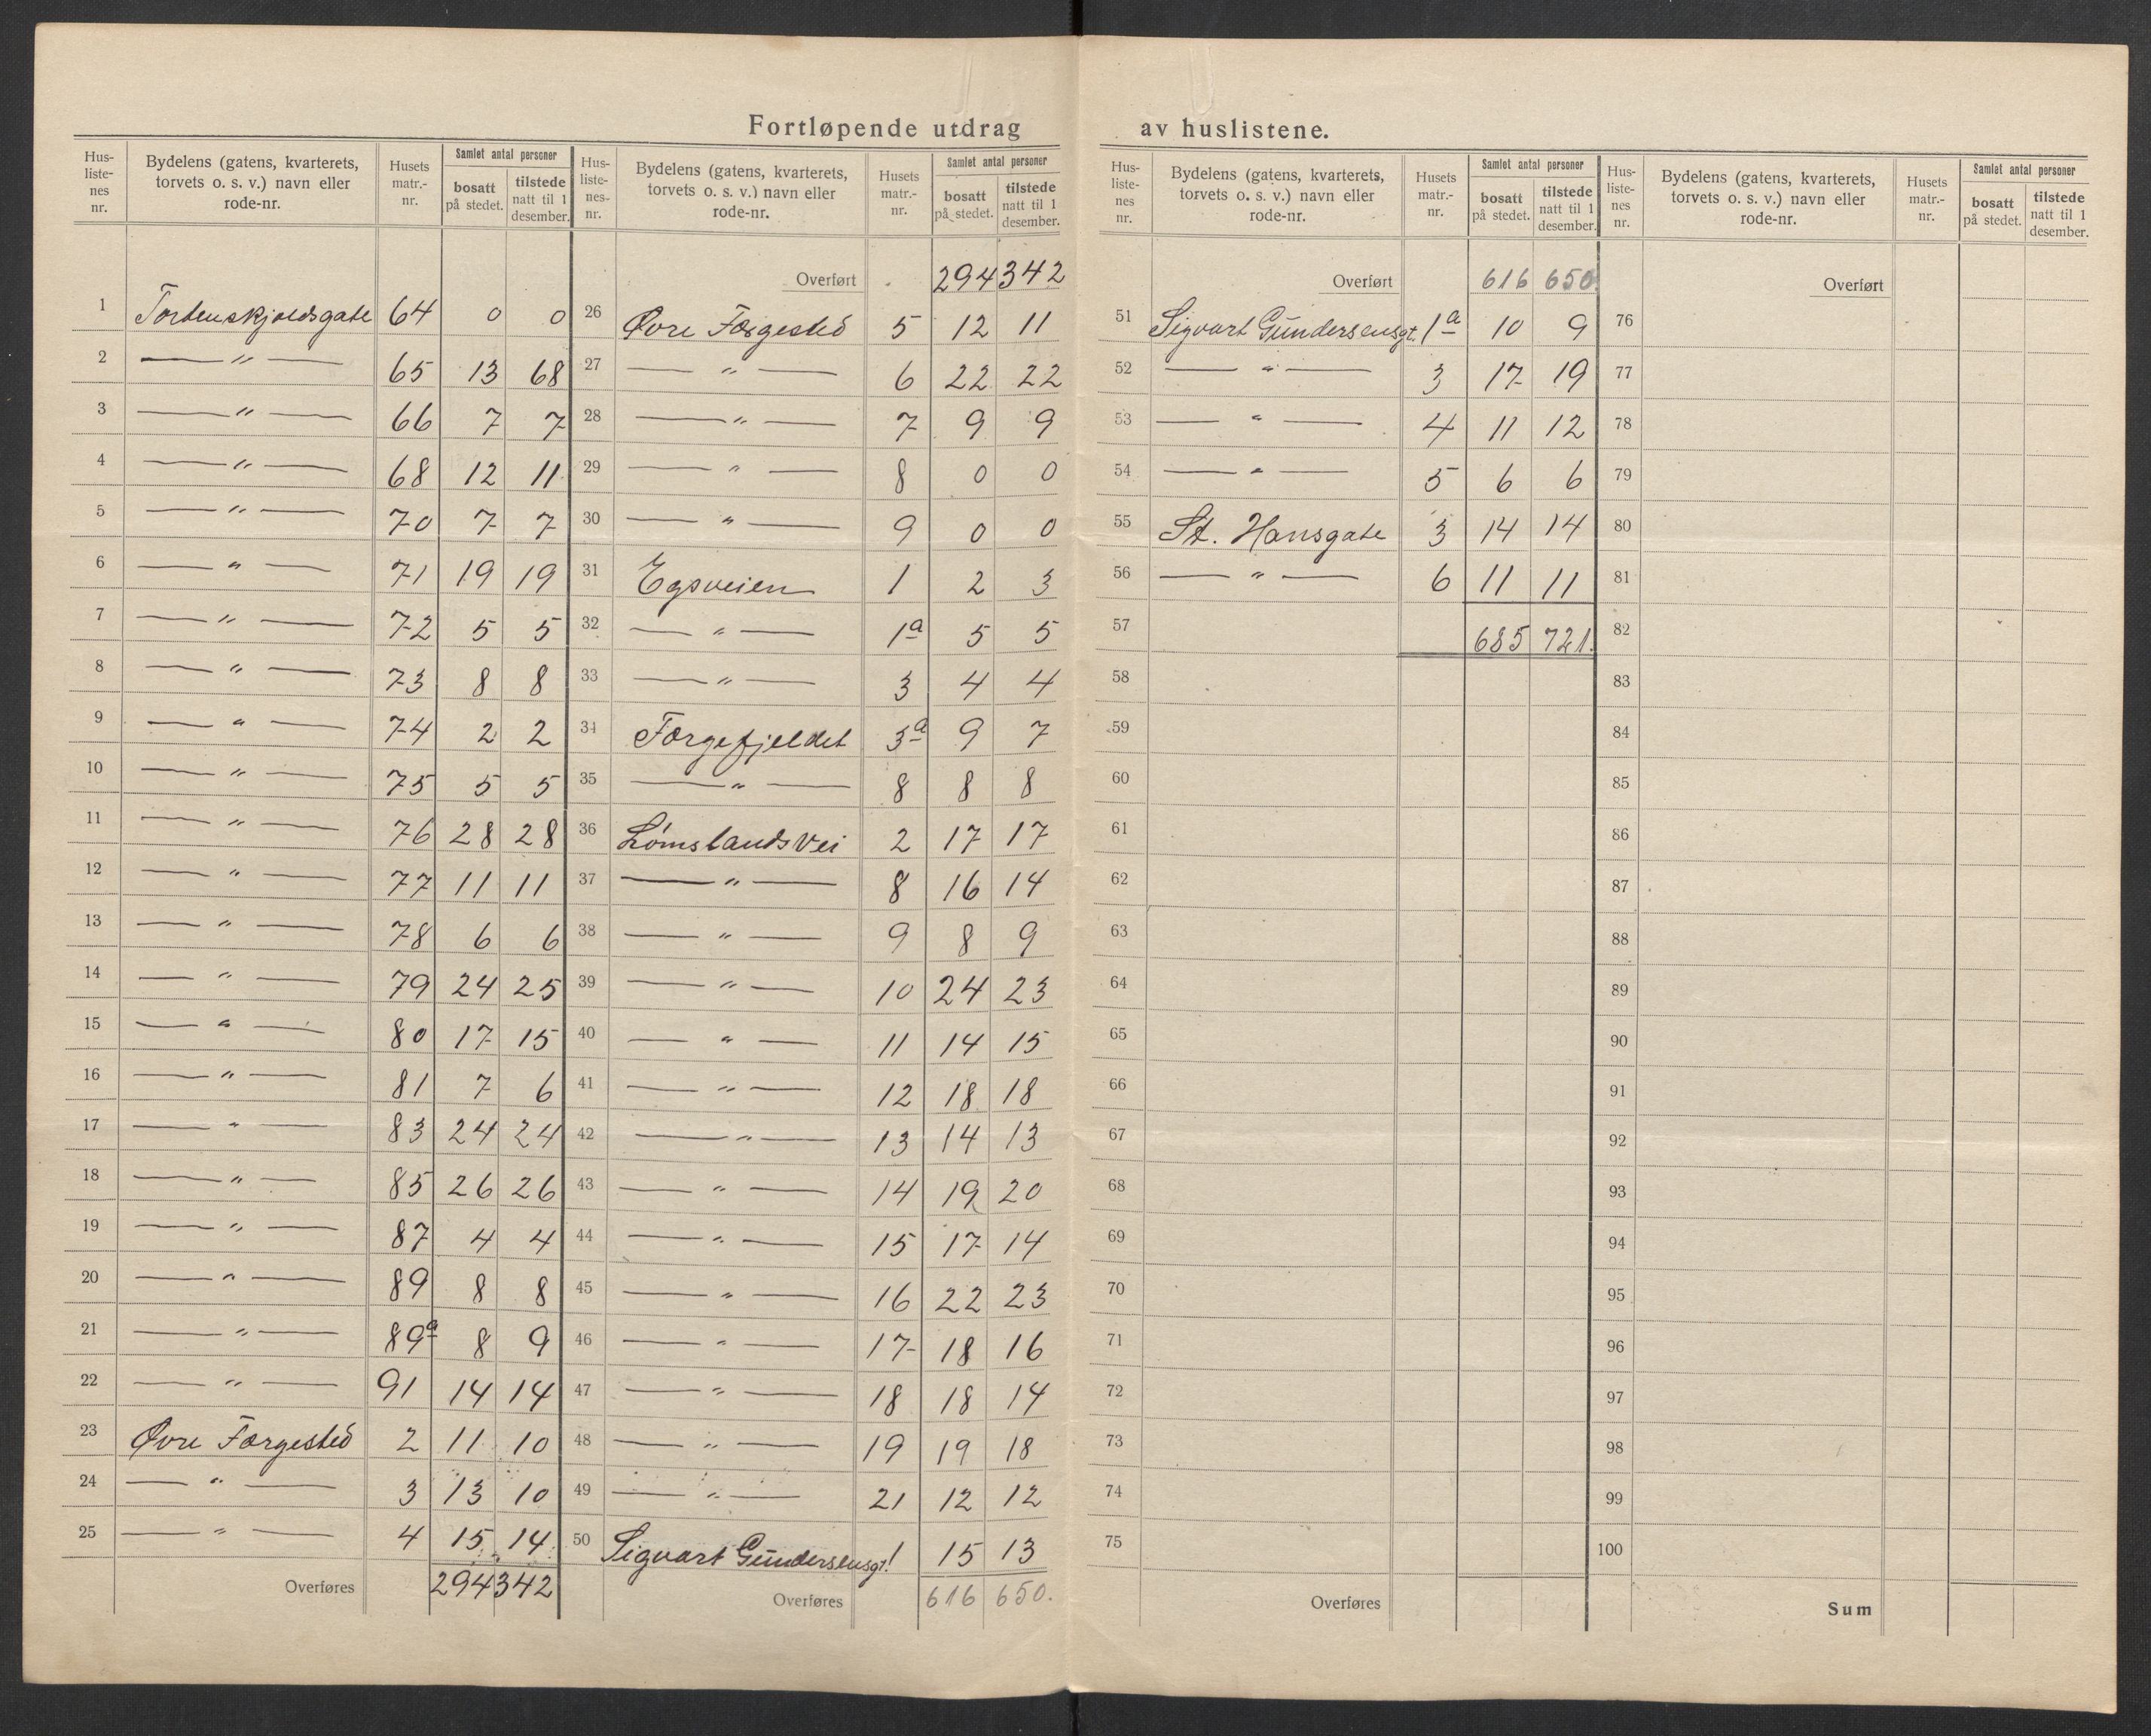 Fortløpende utdrag av huslistene.
Hus-listenes nr. | Bydelens (gatens, kvarterets, torvets o. s. v.) navn eller rode-nr. | Husets matr.-nr. | Samlet antal personer | bosatt på stedet. | tilstede natt til 1 desember.
1 Tordenskjoldsgate 64 0 0
2 — " — 65 13 68
3 — " — 66 7 7
4 — " — 68 12 11
5 — " — 70 7 7
6 — " — 71 19 19
7 — " — 72 5 5
8 — " — 73 8 8
9 — " — 74 2 2
10 — " — 75 5 5
11 — " — 76 28 28
12 — " — 77 11 11
13 — " — 78 6 6
14 — " — 79 24 25
15 — " — 80 17 15
16 — " — 81 7 6
17 — " — 83 24 24
18 — " — 85 26 26
19 — " — 87 4 4
20 — " — 89 8 8
21 — " — 89a 8 9
22 — " — 91 14 14
23 Øvre Færgested 2 11 10
24 — " — 3 13 10
25 — " — 4 15 14
Overføres 294 342
Hus-listenes-nr. | Bydelens (gatens, kvarterets, torvets o. s. v.) navn eller rode-nr. | Husets matr.-nr. | Samlet antal personer | bosatt på stedet. | tilstede natt til 1 desember.
Overført 294 342
26 Øvre Færgested 5 12 11
27 — " — 6 22 22
28 — " — 7 9 9
29 — " — 8 0 0
30 — " — 9 0 0
31 Egsveien 1 2 3
32 — " — 1a 5 5
33 — " — 3 4 4
34 Færgefjeldet 3a 9 7
35 — " — 8 8 8
36 Lømslandsvei 2 17 17
37 — " — 8 16 14
38 — " — 9 8 9
39 — " — 10 24 23
40 — " — 11 14 15
41 — " — 12 18 18
42 — " — 13 14 13
43 — " — 14 19 20
44 — " — 15 17 14
45 — " — 16 22 23
46 — " — 17 18 16
47 — " — 18 18 14
48 — " — 19 19 18
49 — " — 21 12 12
50 Sigvart Gundersensgt. 1 15 13
Overføres 616 650.
Hus-listenes nr. | Bydelens (gatens, kvarterets, torvets o. s. v.) navn eller rode-nr. | Husets matr.-nr. | Samlet antal personer | bosatt på stedet. | tilstede natt til 1 desember.
Overført 616 650
51 Sigvart Gundersensgt. 1a 10 9
52 — " — 3 17 19
53 — " — 4 11 12
54 — " — 5 6 6
55 St. Hansgate 3 14 14
56 — " — 6 11 11
57 685 721.
58
59
60
61
62
63
64
65
66
67
68
69
70
71
72
73
74
75
Overføres
Hus-listenes nr. | Bydelens (gatens, kvarterets, torvets o. s. v.) navn eller rode-nr. | Husets matr.-nr. | Samlet antal personer | bosatt på stedet. | tilstede natt til 1 desember.
Overført
76
77
78
79
80
81
82
83
84
85
86
87
88
89
90
91
92
93
94
95
96
97
98
99
100
Sum